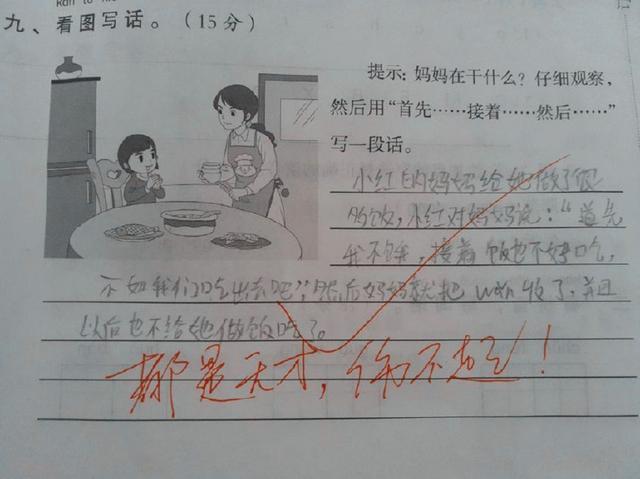 Kan tu xie
九、看图写话。（15分）
提示：妈妈在干什么？仔细观察，
然后用“首先……接着……然后……”
写一段话。
小红的妈妈给她做了很
多饭，小红对妈妈说：“首先
我不饿，接着饭也不好吃，
不如我们吃出去吧”，然后妈妈就把wǎn收了，并且
以后也不给她做饭吃了。
都是天才，伤不起！